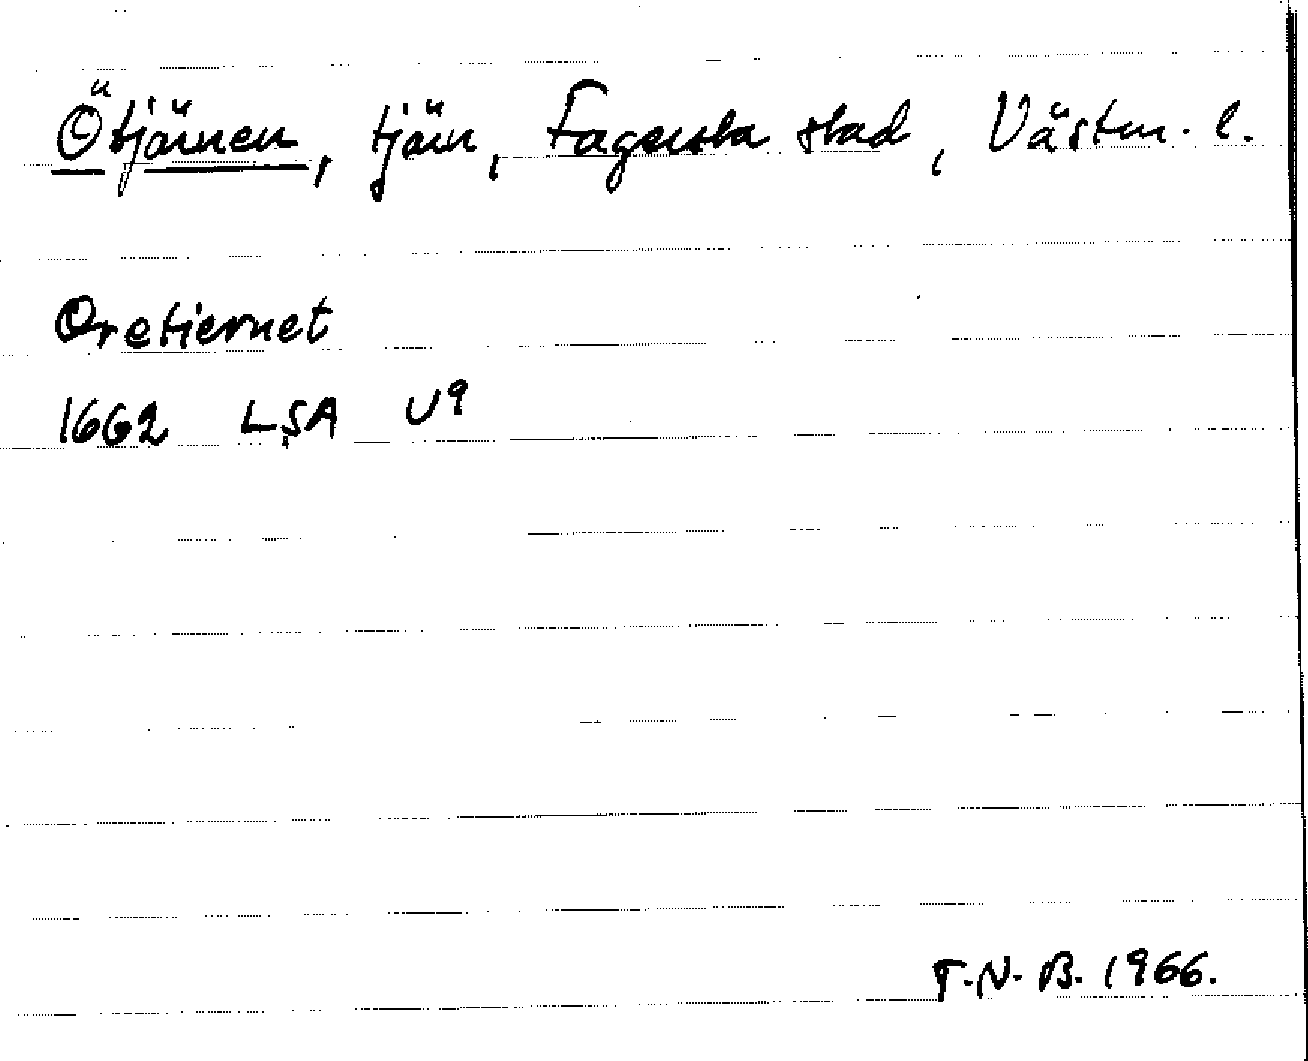 Ötjärnen, tjärn, Fagersta stad, Västm. l.
Oretiernet
1662 LSA U9
T.N.B. 1966.